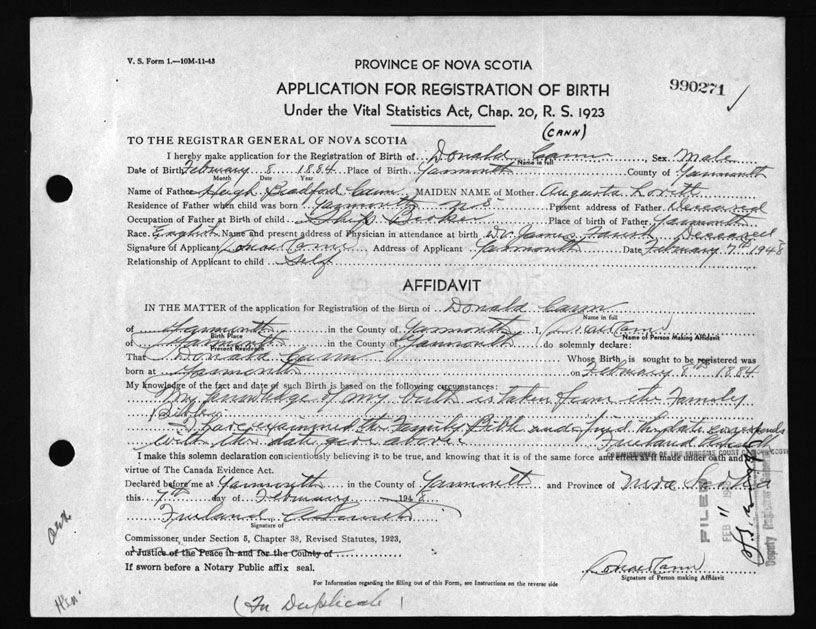 V. S. Form 1.—10M-11-43
PROVINCE OF NOVA SCOTIA
990271
APPLICATION FOR REGISTRATION OF BIRTH
Under the Vital Statistics Act, Chap. 20, R. S. 1923
(CANN)
TO THE REGISTRAR GENERAL OF NOVA SCOTIA
I hereby make application for the Registration of Birth of Donald Cann, Sex Male
Name in full
Date of Birth February 8 1884 Place of Birth Yarmouth County of Yarmouth
Month Day Year
Name of Father Hugh Bradford Cann MAIDEN NAME of Mother Augusta Lovitt
Residence of Father when child was born Yarmouth N.S. Present address of Father Deceased
Occupation of Father at Birth of child Ship Broker Place of birth of Father Yarmouth
Race English Name and present address of Physician in attendance at birth Dr. James Deceased
Signature of Applicant Donald Cann Address of Applicant Yarmouth Date February 7th 1948
Relationship of Applicant to child Self
AFFIDAVIT
IN THE MATTER of the application for Registration of the Birth of Donald Cann
Name in full
of Yarmouth in the County of Yarmouth I, Donald Cann
Birth Place Name of Person Making Affidavit
of Yarmouth in the County of Yarmouth do solemnly declare:
Present Residence
That Donald Cann Whose Birth is sought to be registered was
born at Yarmouth on February 8th 1884
My knowledge of the fact and date of such Birth is based on the following circumstances:
My knowledge of my birth is taken from the Family
Bible.
I have examined the Family Bible and find the date corresponds
with the date give above. Freeland
COMMISSIONER OF THE SUPREME COURT OF NOVA SCOTIA
I make this solemn declaration conscientiously believing it to be true, and knowing that it is of the same force and effect as if made under oath and by
virtue of The Canada Evidence Act.
Declared before me at Yarmouth in the County of Yarmouth and Province of Nova Scotia
this 7th day of February 1948
Freeland
Signature of
Commissioner under Section 5, Chapter 38, Revised Statutes, 1923,
or Justice of the Peace in and for the County of
If sworn before a Notary Public affix seal.
FILED
FEB 11
Deputy Registrar
Donald Cann
Signature of Person making Affidavit
For Information regarding the filling out of this Form, see Instructions on the reverse side
(In Duplicate)